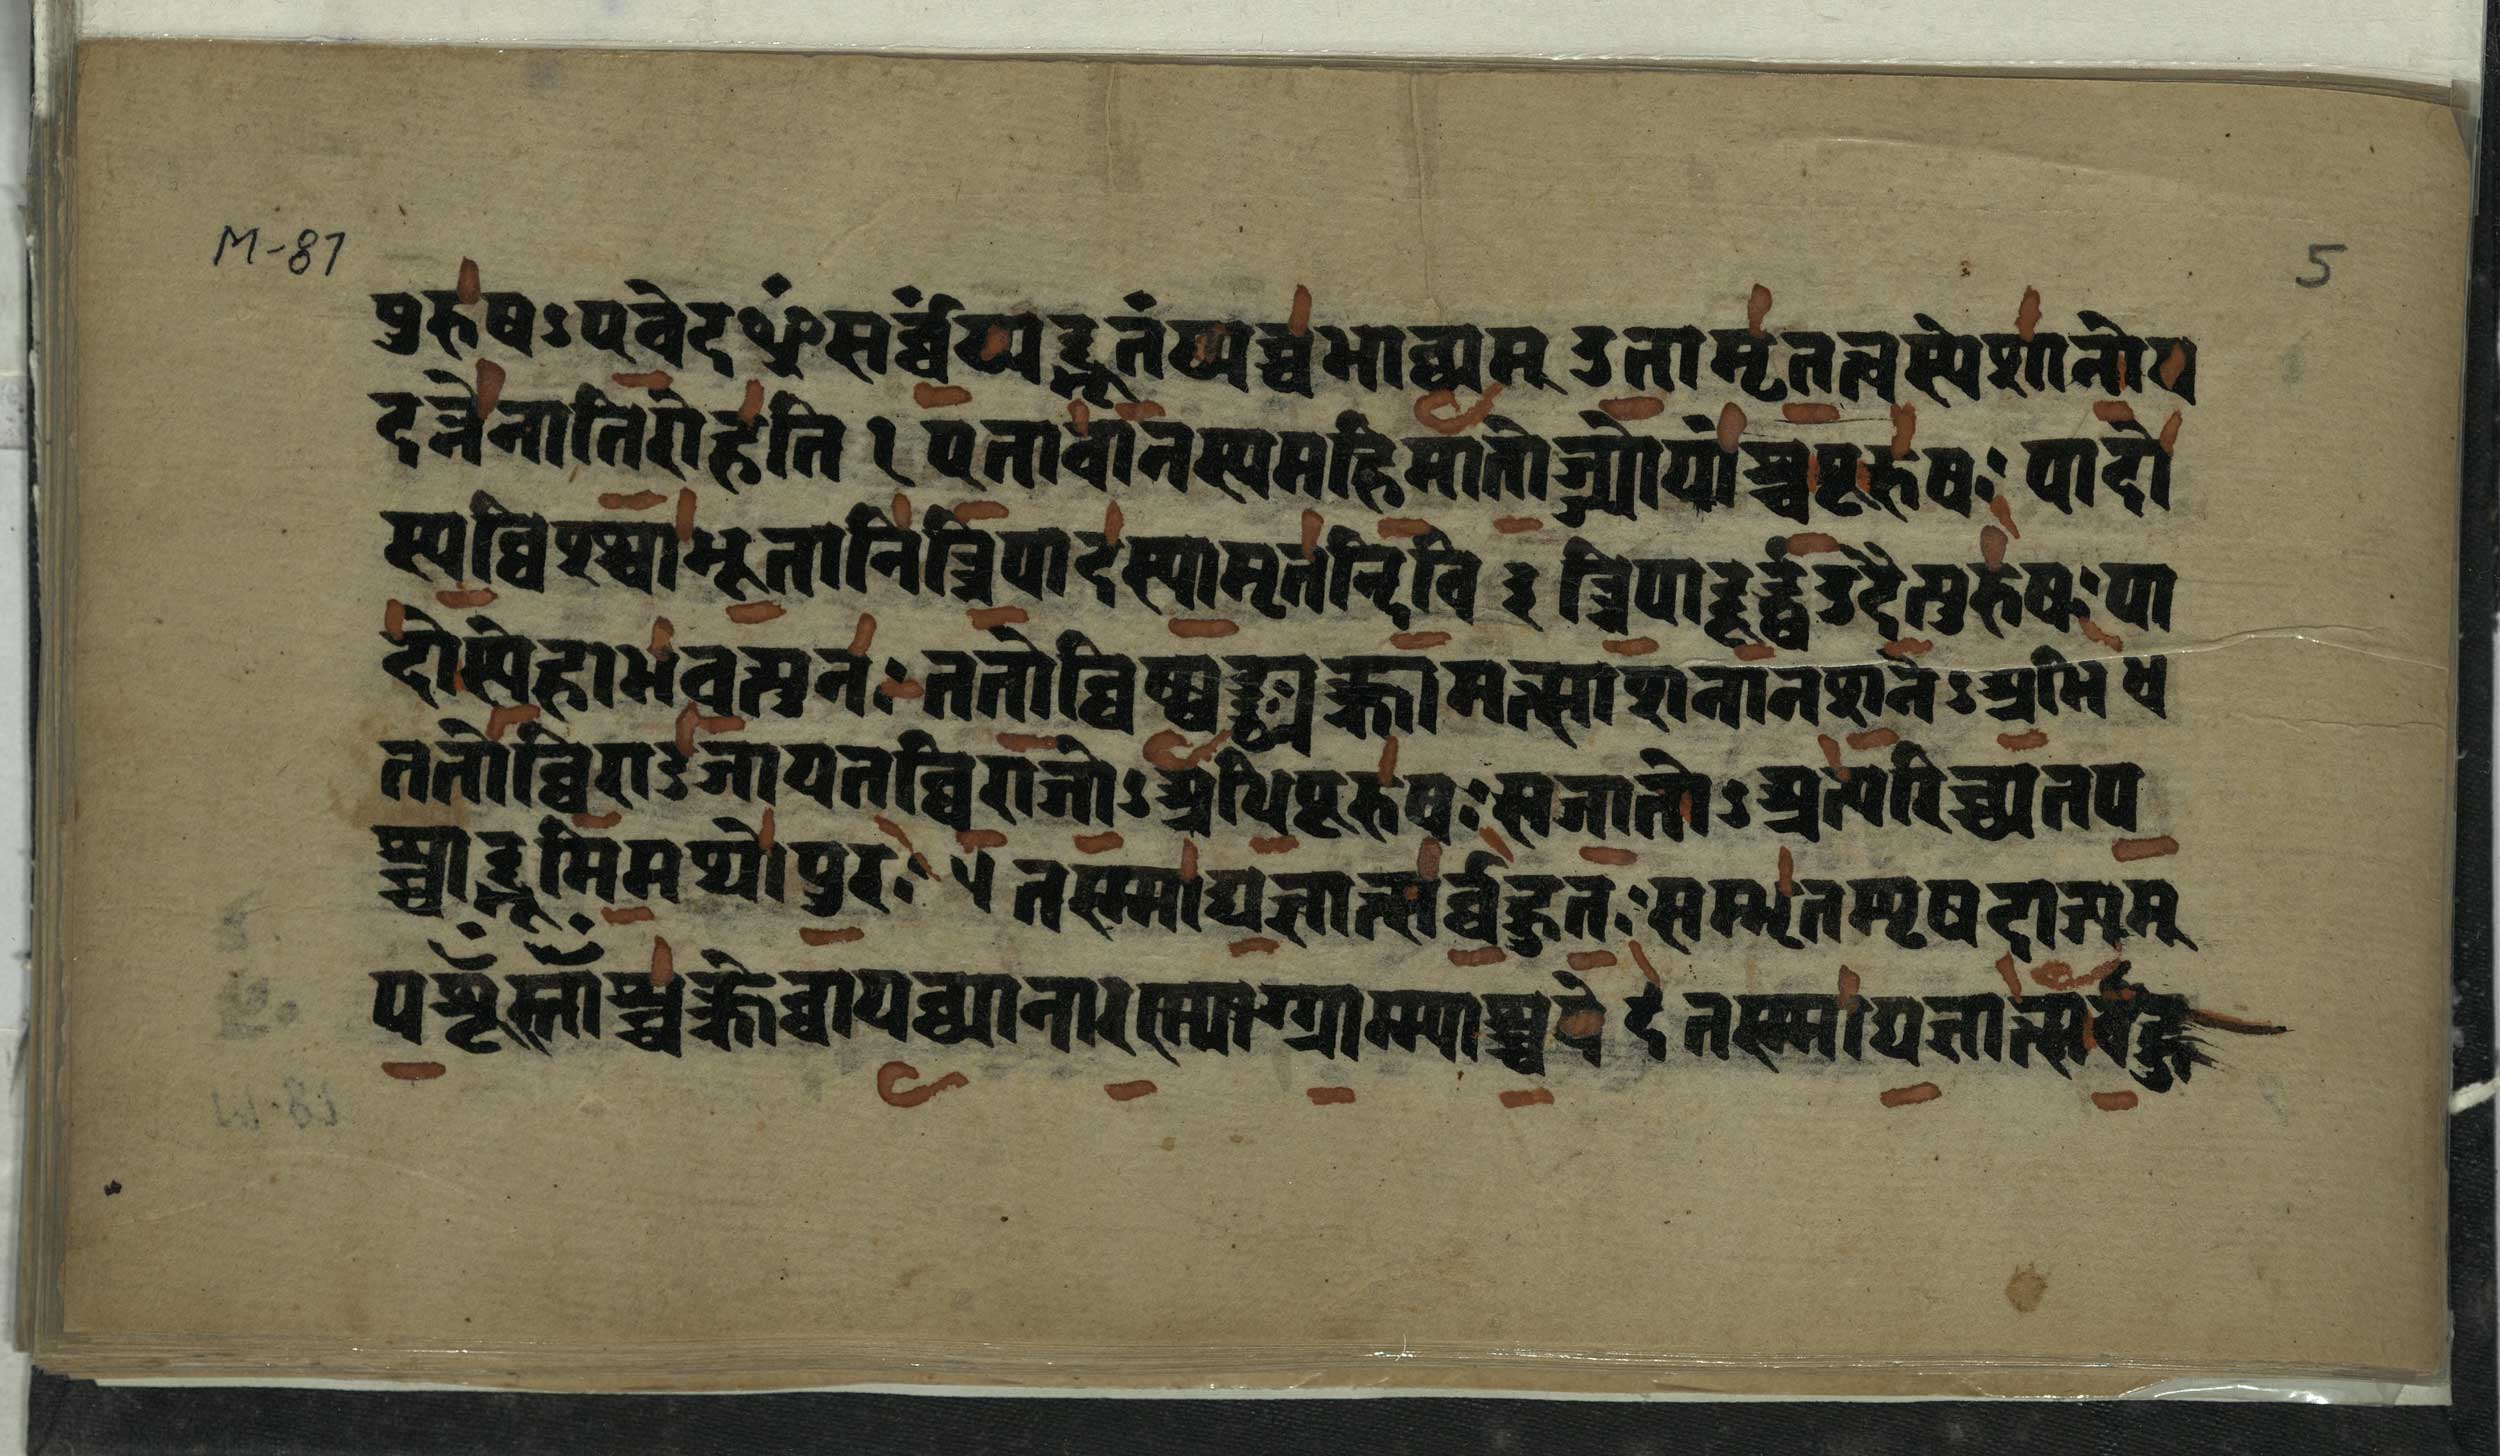 M-87
5
पुरुषऽएवेदᳪसर्व्वंय्यद्भूतंय्यच्चभाव्यम् उतामृतत्वस्येशानोय
दन्नेनातिरोहति २ एतावानस्यमहिमातोज्यायाँश्चपूरुषः पादो
स्यव्विश्श्वाभूतानित्रिपादस्यामृतन्दिवि ३ त्रिपादूर्द्ध्वउदैत्पुरुषःपा
दोस्येहाभवत्पुनः ततोव्विष्ष्वङ्व्यक्रामत्साशनानशनेऽअभि ४
ततोव्विराडजायतव्विराजोऽअधिपूरुषः सजातोऽअत्यरिच्यतप
श्चाद्भूमिमथोपुरः ५ तस्माद्यज्ञात्सर्व्वहुतः सम्भृतम्पृषदाज्यम्
पशूँस्ताँश्चक्क्रेव्वायव्यानारण्याग्ग्राम्याश्चये ६ तस्माद्यज्ञात्सर्वहु